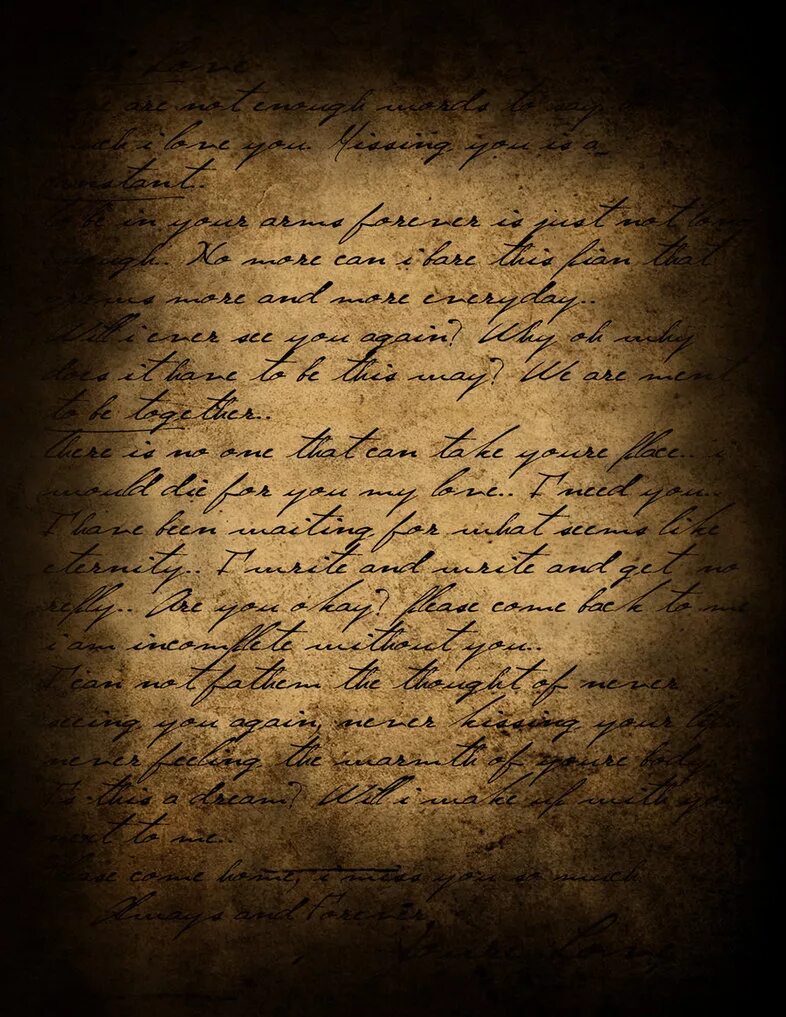 Love
are not enough words to say
i love you. Missing you is a
constant..
to be in your arms forever is just not long
enough. No more can i bare this pian that
grows more and more everyday..
Will i ever see you again? Why oh why
does it have to be this way? We are ment
to be together..
there is no one that can take youre place.. i
would die for you my love.. I need you..
I have been waiting for what seems like
eternity.. I write and write and get no
reply.. Are you okay? Please come back to me
i am incomplete without you..
I can not fathem the thought of never
seeing you again, never kissing your lips
never feeling the warmth of youre body
Is this a dream? Will i wake up with you
next to me..
Please come home, i miss you so much
Always and Forever